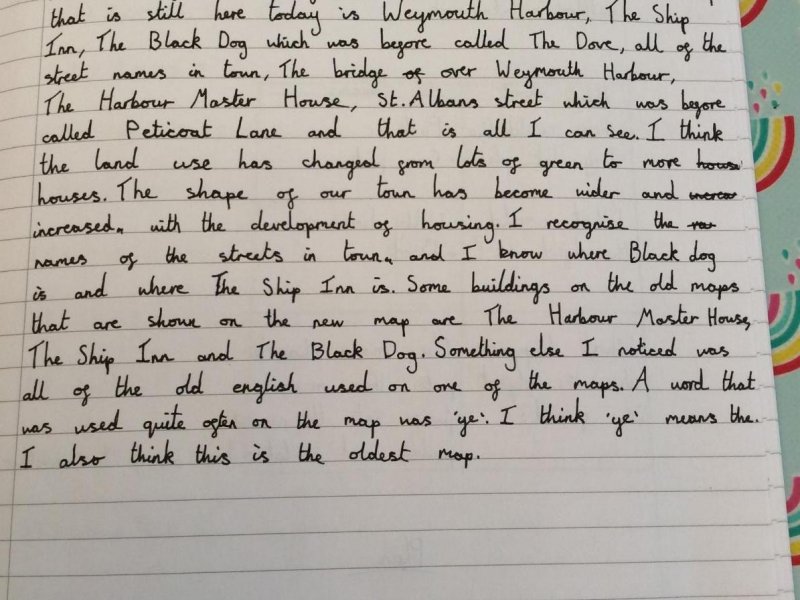 that is still here today is Weymouth Harbour, The Ship
Inn, The Black Dog which was before called The Dove, all of the
street names in town, The bridge of over Weymouth Harbour,
The Harbour Master House, St. Albans street which was before
called Peticoat Lane and that is all I can see. I think
the land use has changed from lots of green to more house
houses. The shape of our town has become wider and increas
increased, with the development of housing. I recognise the
names of the streets in town, and I know where Black dog
is and where The Ship Inn is. Some buildings on the old maps
that are shown on the new map are The Harbour Master House,
The Ship Inn and The Black Dog. Something else I noticed was
all of the old english used on one of the maps. A word that
was used quite often on the map was 'ye'. I think 'ye' means the.
I also think this is the oldest map.